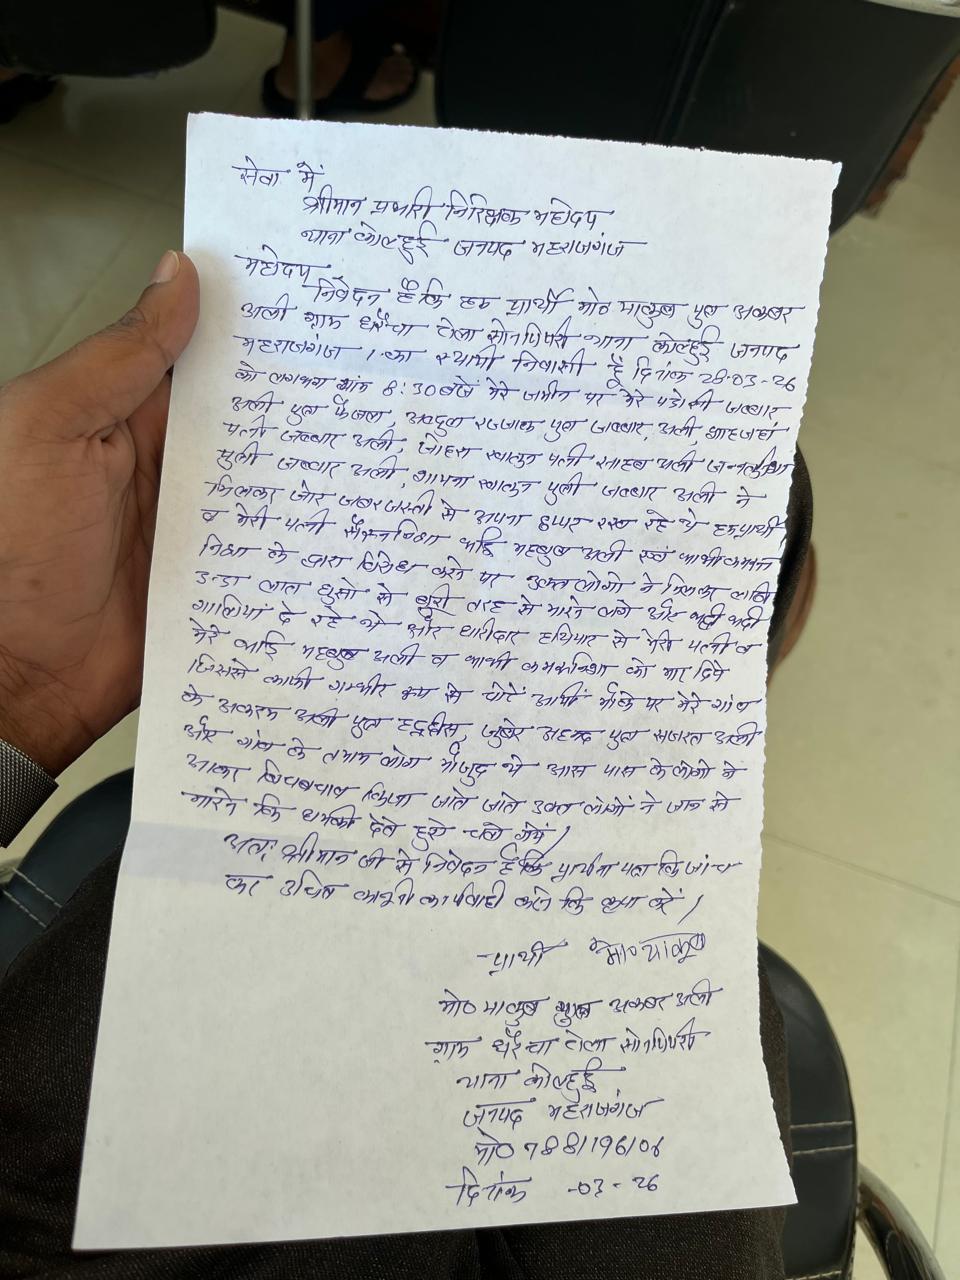 सेवा में
श्रीमान प्रभारी निरिक्षक महोदय
थाना कोल्हुई जनपद महराजगंज
महोदय
निवेदन है कि हम प्रार्थी मो० याकुब पुत्र अकबर
अली ग्राम धरैचा टोला सोनपिपरी थाना कोल्हुई जनपद
महराजगंज । का स्थायी निवासी हूँ दिनांक 28-03-26
को लगभग शांम 8:30 बजे मेरे जमीन पर मेरे पडोसी जब्बार
अली पुत्र फैजला, अब्दुल रज्जाक पुत्र जब्बार, अली, शाहजहां
पत्नी जब्बार अली, जोहरा खातुन पत्नी अली
पुत्री जब्बार अली, खातुन पुत्री जब्बार अली ने
मिलकर जोर जबरजस्ती से अपना छप्पर रख रहे थे हम प्रार्थी
व मेरी पत्नी भाई महबुब अली एवं भाभी कमरून
निशा के द्वारा विरोध करने पर उक्त लोगो ने मिलकर लाठी
डन्डा लात घुसो से बुरी तरह से मारने लगे और भद्दी भद्दी
गालियां दे रहे थे और धारीदार हथियार से मेरी पत्नी व
मेरे भाई महबुब अली व भाभी कमरूनिशा को मार दिये
जिससे काफी गम्भीर रूप से चोटें आयीं मौके पर मेरे गांव
के अकरम अली पुत्र, जुबेर अहमद पुत्र अली
और गांव के तमाम लोग मौजुद थे आस पास के लोगो ने
आकर बिचबचाव किया जाते जाते उक्त लोगों ने जान से
मारने कि धमकी देते हुये चले गये ।
अतः श्रीमान जी से निवेदन है कि प्रार्थना पत्र कि जांच
कर उचित कानूनी कार्यवाही करने कि कृपा करें ।
प्रार्थी मो० याकूब
मो० याकुब पुत्र अकबर अली
ग्राम धरैचा टोला सोनपिपरी
थाना कोल्हुई
जनपद महराजगंज
मो०
दिनांक -03-26